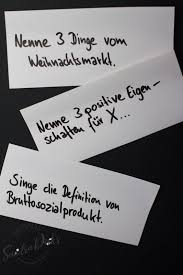 Nenne 3 Dinge vom
Weihnachtsmarkt.
Nenne 3 positive Eigen-
schaften für X...
Singe die Definition von
Bruttosozialprodukt.